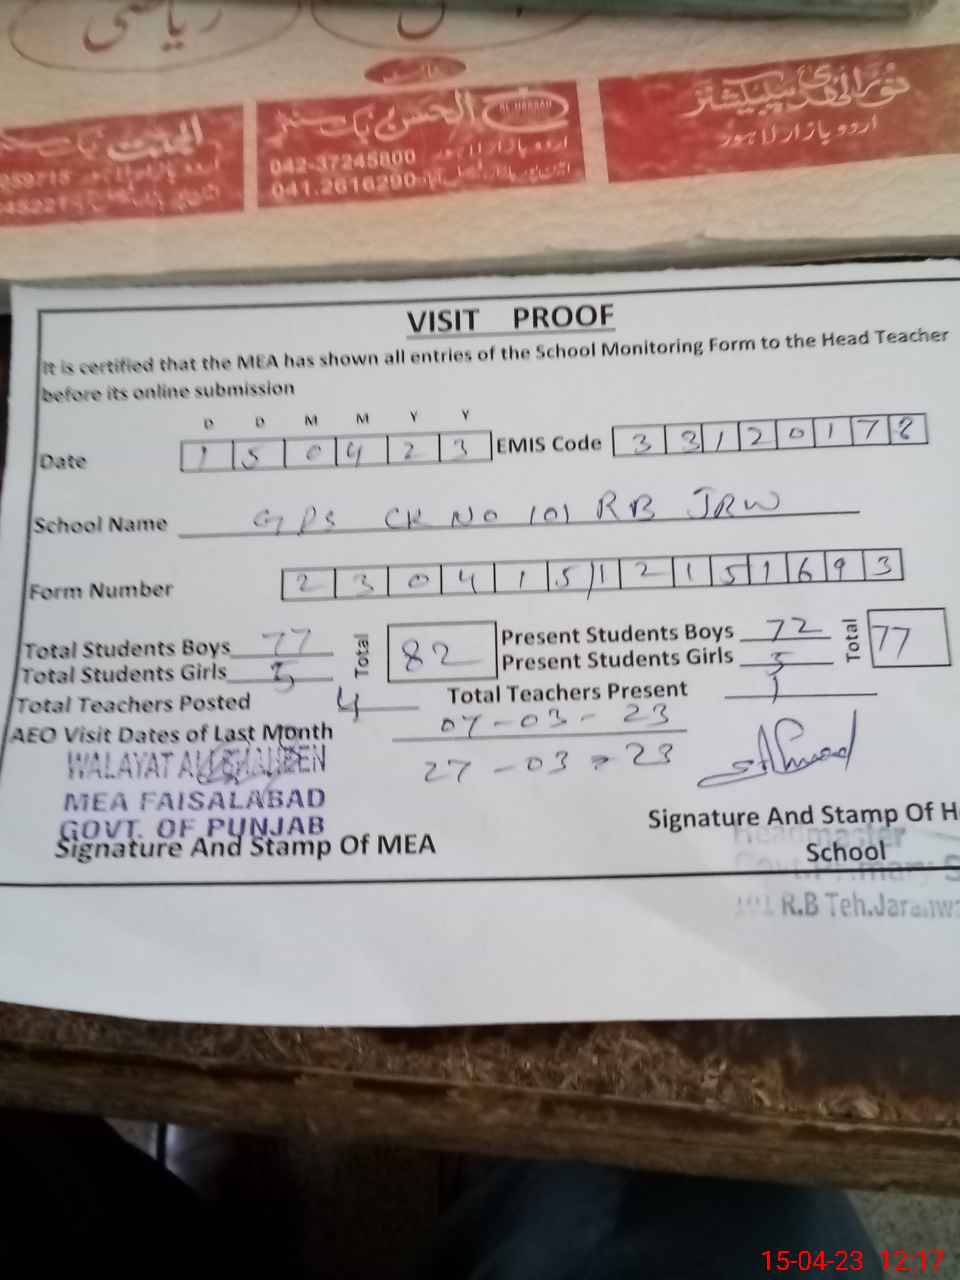 ریاضی
الحسن بک سنٹر AL HASSAN
اردو بازار لاہور 042-37245800
041.2616290
اردو بازار لاہور
VISIT PROOF
It is certified that the MEA has shown all entries of the School Monitoring Form to the Head Teacher
before its online submission
D D M M Y Y
Date 1 5 0 4 2 3 EMIS Code 3 3 1 2 0 1 7 8
School Name GPS CK NO 101 RB JRW
Form Number 2 3 0 4 1 5 1 2 1 5 1 6 9 3
Total Students Boys 77 Total 82 Present Students Boys 72 Total 77
Total Students Girls 5 Present Students Girls 5
Total Teachers Posted 4 Total Teachers Present
AEO Visit Dates of Last Month 07-03-23
27-03-23
WALAYAT ALI
MEA FAISALABAD
GOVT. OF PUNJAB
Signature And Stamp Of MEA
Signature And Stamp Of H
School
Headmaster
Govt. Primary S
101 R.B Teh.Jaranwa
15-04-23 12:17